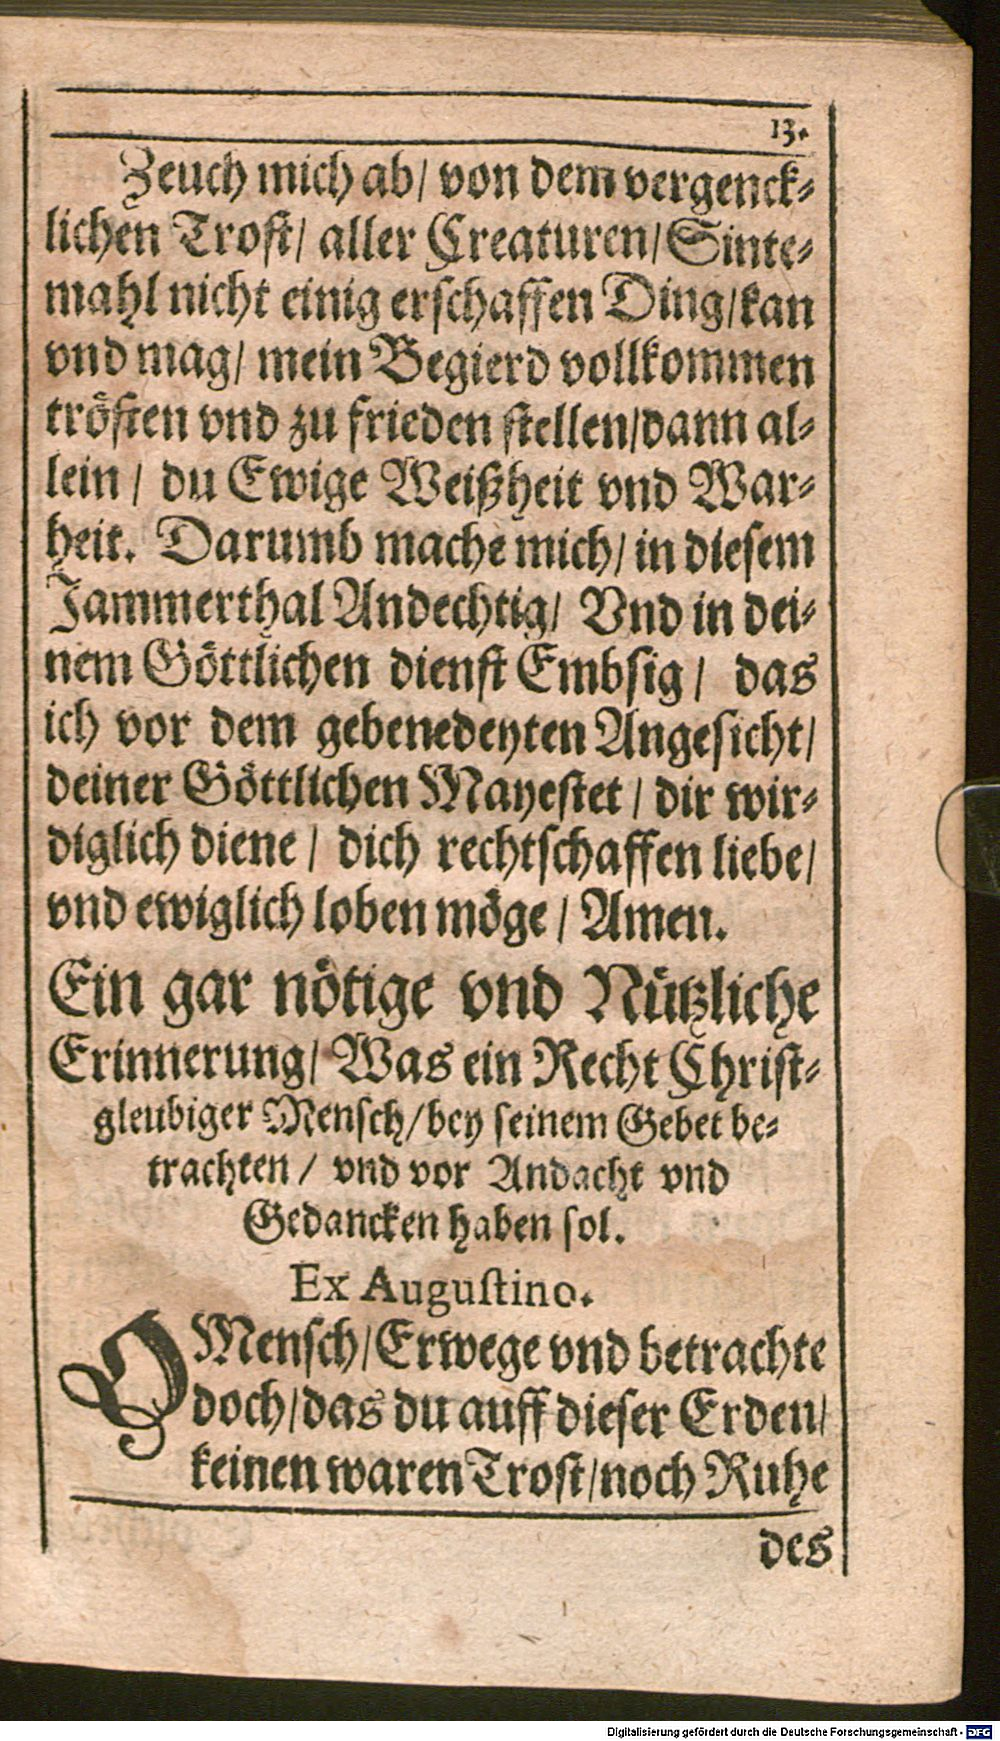 13.
Zeuch mich ab/ von dem vergenck-
lichen Trost/ aller Creaturen/ Sinte-
mahl nicht einig erschaffen Ding/ kan
vnd mag/ mein Begierd vollkommen
trösten vnd zu frieden stellen/ dann al-
lein / du Ewige Weißheit vnd War-
heit. Darumb mache mich/ in diesem
Jammerthal Andechtig/ Vnd in dei-
nem Göttlichen dienst Embsig / das
ich vor dem gebenedeyten Angesicht/
deiner Göttlichen Mayestet / dir wir-
diglich diene / dich rechtschaffen liebe/
vnd ewiglich loben möge / Amen.
Ein gar nötige vnd Nützliche
Erinnerung/ Was ein Recht Christ-
gleubiger Mensch/ bey seinem Gebet be-
trachten / vnd vor Andacht vnd
Gedancken haben sol.
Ex Augustino.
O Mensch/ Erwege vnd betrachte
doch/ das du auff dieser Erden/
keinen waren Trost/ noch Ruhe
des
Digitalisierung gefördert durch die Deutsche Forschungsgemeinschaft - DFG